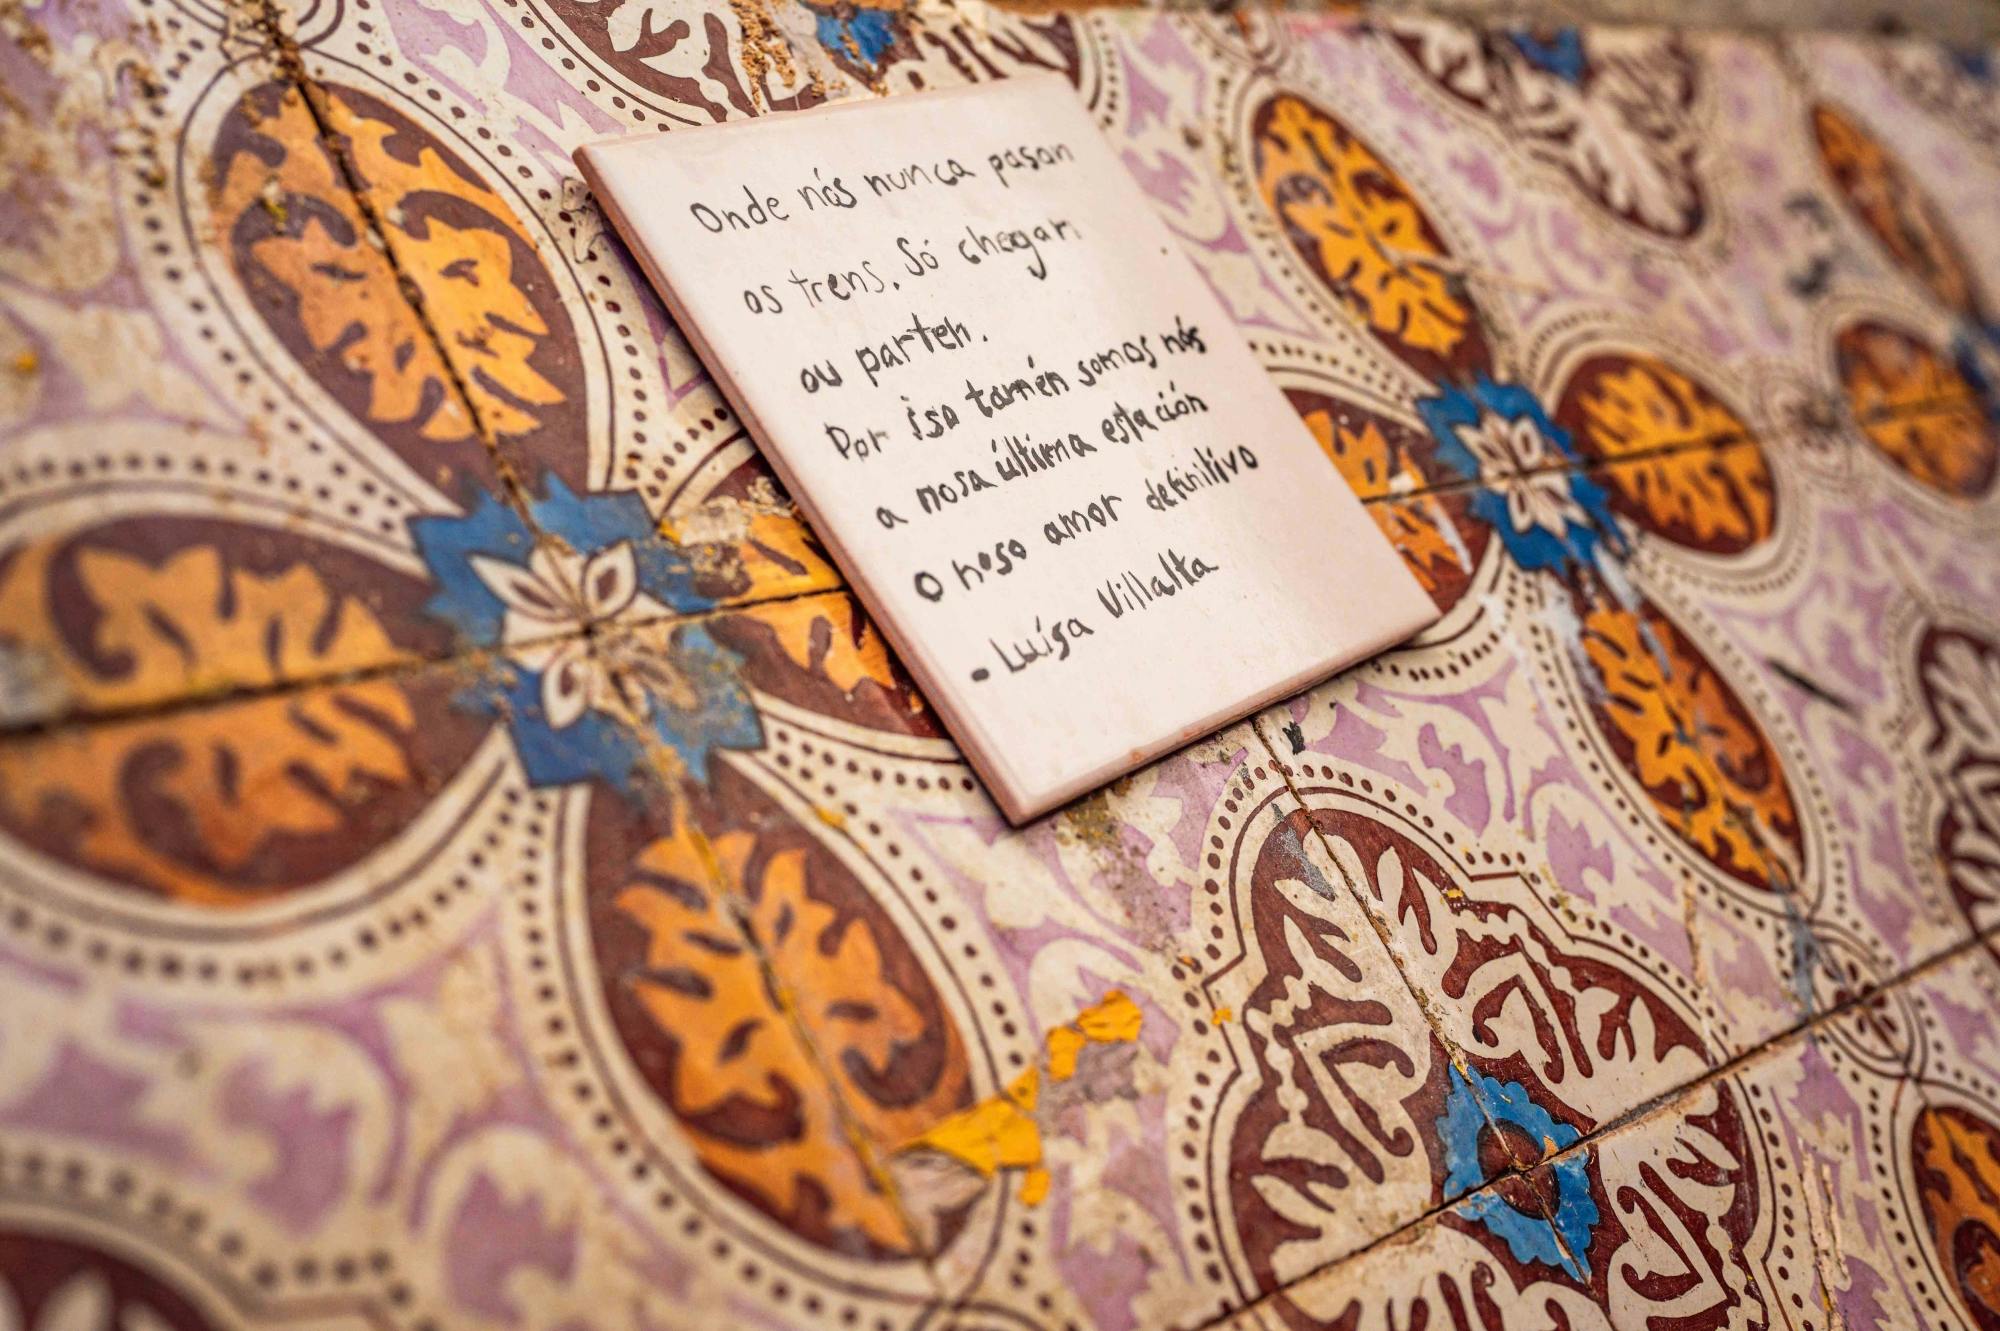 Onde nós nunca pasan
os trens. Só chegan
ou parten.
Por iso tamén somos nós
a nosa última estación
o noso amor definitivo
- Luísa Villalta